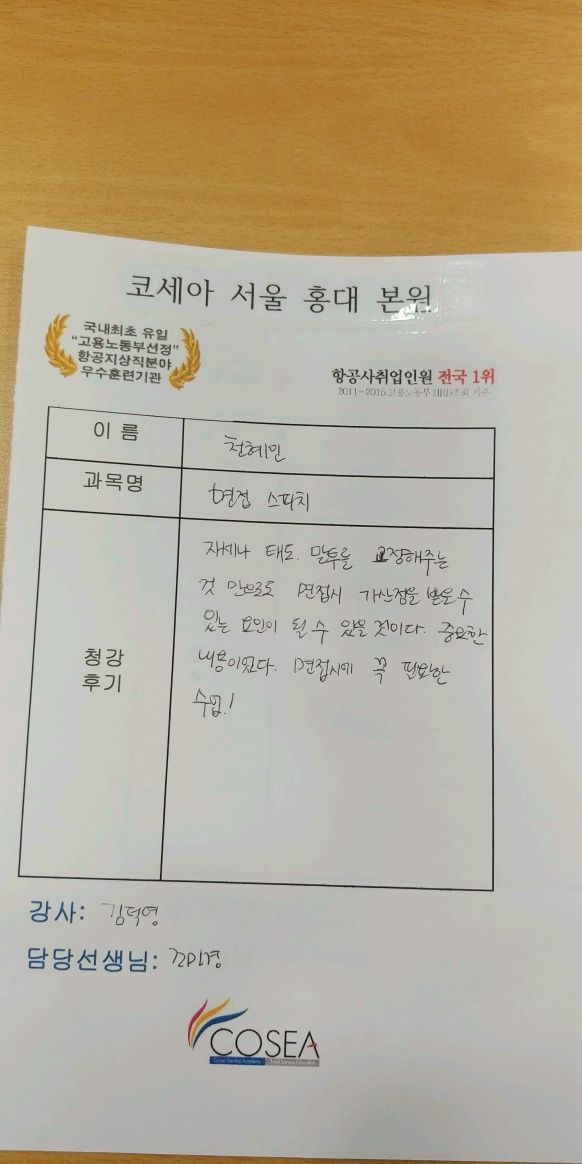 코세아 서울 홍대 본원
국내최초 유일
"고용노동부선정"
항공지상직분야
우수훈련기관
항공사취업인원 전국 1위
2011~2015 고용노동부 HRD조회 기준
이 름
천혜인
과목명
면접 스피치
청강
후기
자세나 태도. 말투를 교정해주는
것 만으로도 면접시 가산점을 받을 수
있는 요인이 될 수 있을 것이다. 중요한
내용이였다. 면접시에 꼭 필요한
수업!
강사: 김덕영
담당선생님:
COSEA